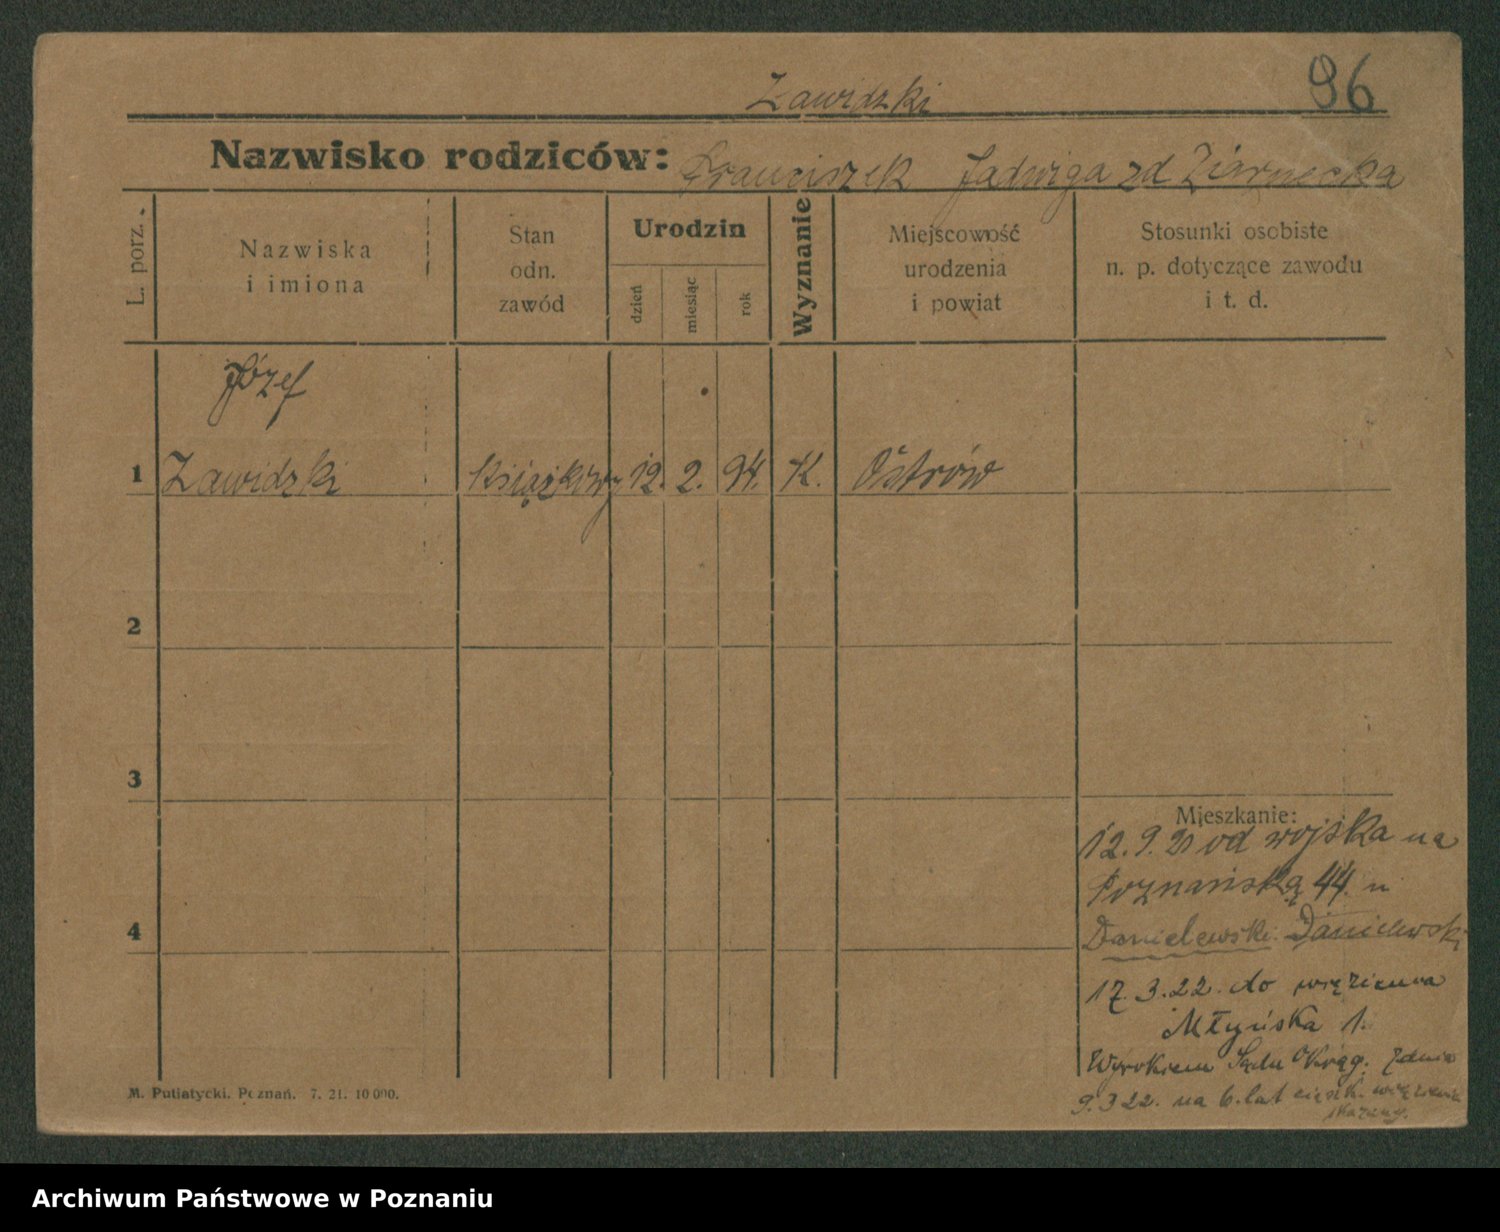 Zawidzki
96
Nazwisko rodziców: Franciszek Jadwiga zd Ziarnecka
L. porz.
Nazwiska
i imiona
Stan
odn.
zawód
Urodzin
dzień
miesiąc
rok
Wyznanie
Miejscowość
urodzenia
i powiat
Stosunki osobiste
n. p. dotyczące zawodu
i t. d.
Józef
1 Zawidzki książkowy 12. 2. 94. K. Ostrów
2
3
Mieszkanie:
12.9.21 od wojska na
Poznańską 44. u
4
Danielewski. Danielewski
17.3.22. do więzienia
Młyńska 1.
Wyrokiem Sądu Okręg. z dnia
9.3 22. na 6. lat ciężk. więzienia
skazany.
M. Putiatycki. Poznań. 7. 21. 10 000.
Archiwum Państwowe w Poznaniu